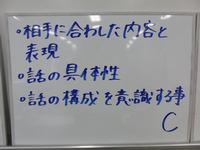 ・相手に合わした内容と
表現
・話の具体性
・話の構成を意識する事
C